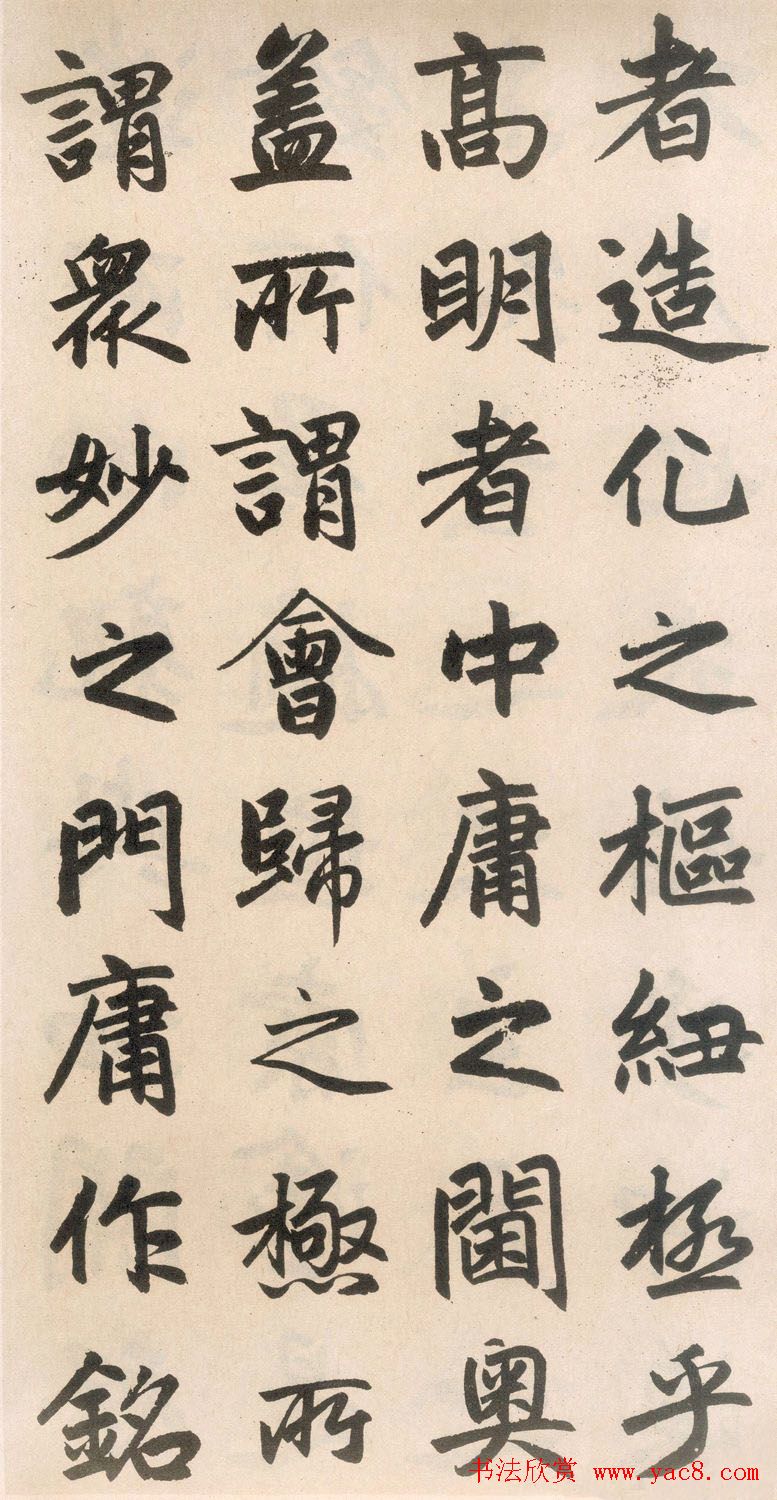 者造化之樞紐極乎
高明者中庸之閫奧
蓋所謂會歸之極所
謂眾妙之門庸作銘
书法欣赏 www.yac8.com